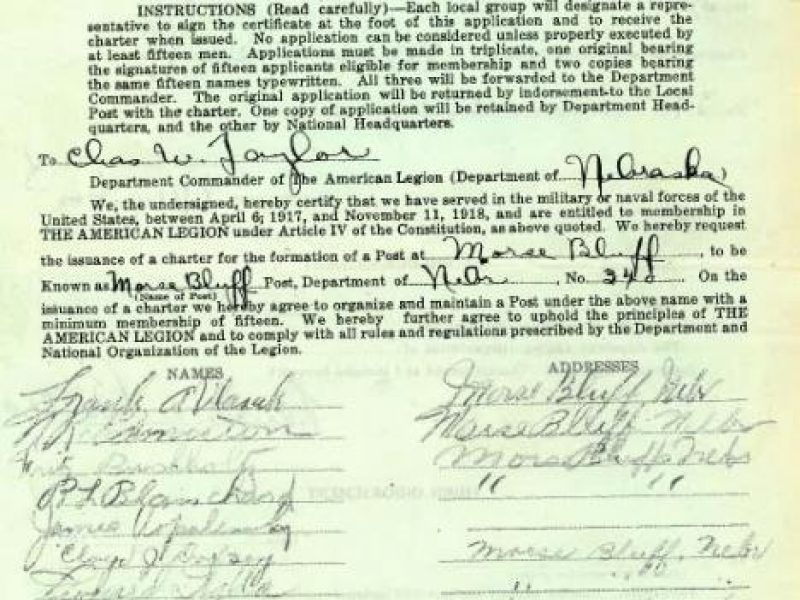 INSTRUCTIONS (Read carefully)—Each local group will designate a repre-
sentative to sign the certificate at the foot of this application and to receive the
charter when issued. No application can be considered unless properly executed by
at least fifteen men. Applications must be made in triplicate, one original bearing
the signatures of fifteen applicants eligible for membership and two copies bearing
the same fifteen names typewritten. All three will be forwarded to the Department
Commander. The original application will be returned by indorsement to the Local
Post with the charter. One copy of application will be retained by Department Head-
quarters, and the other by National Headquarters.
To Chas W. Taylor
Department Commander of The American Legion (Department of Nebraska)
We, the undersigned, hereby certify that we have served in the military or naval forces of the
United States, between April 6, 1917, and November 11, 1918, and are entitled to membership in
THE AMERICAN LEGION under Article IV of the Constitution, as above quoted. We hereby request
the issuance of a charter for the formation of a Post at Morse Bluff, to be
Known as Morse Bluff Post, Department of Nebr, No. 340 On the
(Name of Post)
issuance of a charter we hereby agree to organize and maintain a Post under the above name with a
minimum membership of fifteen. We hereby further agree to uphold the principles of THE
AMERICAN LEGION and to comply with all rules and regulations prescribed by the Department and
National Organization of the Legion.
NAMES ADDRESSES
Frank Morse Bluff Nebr
Morse Bluff Nebr
Morse Bluffs Nebr
R L Blanchard " "
James
Floyd J Morse Bluff, Nebr
" "
"